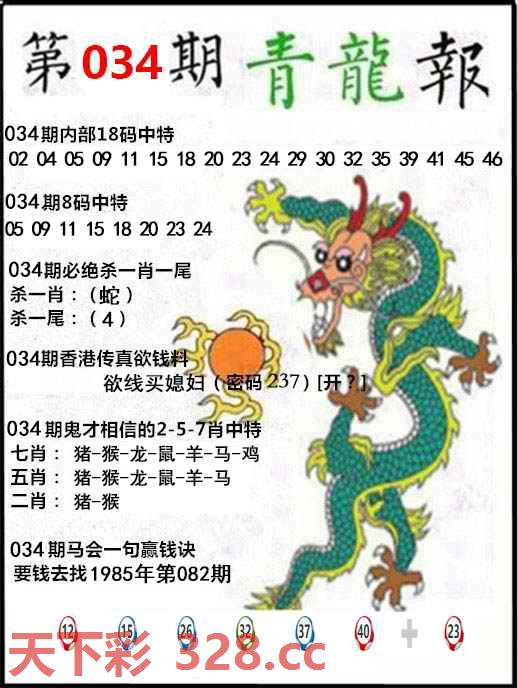 第034期青龍報
034期内部18码中特
02 04 05 09 11 15 18 20 23 24 29 30 32 35 39 41 45 46
034期8码中特
05 09 11 15 18 20 23 24
034期必绝杀一肖一尾
杀一肖：（蛇）
杀一尾：（4）
034期香港传真欲钱料
欲线买媳妇（密码237）[开？]
034期鬼才相信的2-5-7肖中特
七肖： 猪-猴-龙-鼠-羊-马-鸡
五肖： 猪-猴-龙-鼠-羊-马
二肖： 猪-猴
034期马会一句赢钱诀
要钱去找1985年第082期
12 15 26 32 37 40 + 23
天下彩 328.cc